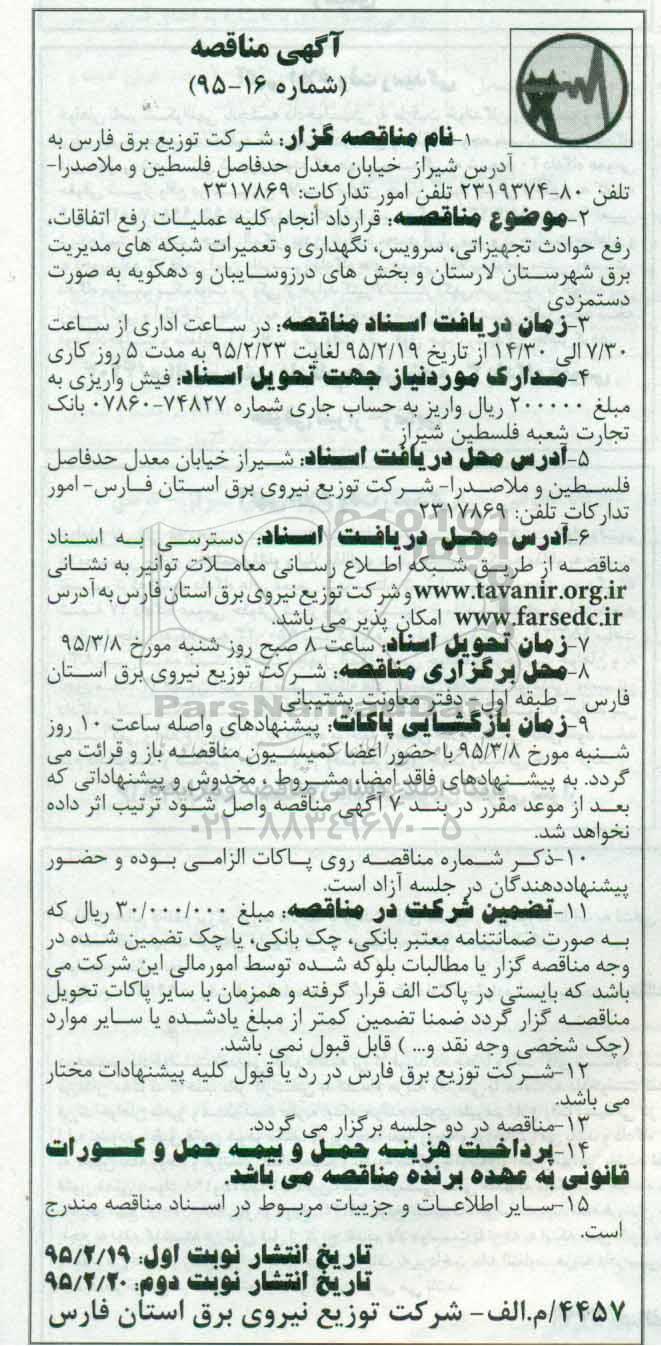 آگهی مناقصه
(شماره ۱۶-۹۵)
۱-نام مناقصه گزار: شرکت توزیع برق فارس به
آدرس شیراز خیابان معدل حدفاصل فلسطین و ملاصدرا-
تلفن ۸۰-۲۳۱۹۳۷۴ تلفن امور تدارکات: ۲۳۱۷۸۶۹
۲-موضوع مناقصه: قرارداد انجام کلیه عملیات رفع اتفاقات،
رفع حوادث تجهیزاتی، سرویس، نگهداری و تعمیرات شبکه های مدیریت
برق شهرستان لارستان و بخش های درزوسایبان و دهکویه به صورت
دستمزدی
۳-زمان دریافت اسناد مناقصه: در ساعت اداری از ساعت
۷/۳۰ الی ۱۴/۳۰ از تاریخ ۹۵/۲/۱۹ لغایت ۹۵/۲/۲۳ به مدت ۵ روز کاری
۴-مدارک موردنیاز جهت تحویل اسناد: فیش واریزی به
مبلغ ۲۰۰۰۰۰ ریال واریز به حساب جاری شماره ۷۴۸۲۷-۰۷۸۶۰ بانک
تجارت شعبه فلسطین شیراز
۵-آدرس محل دریافت اسناد: شیراز خیابان معدل حدفاصل
فلسطین و ملاصدرا- شرکت توزیع نیروی برق استان فارس- امور
تدارکات تلفن: ۲۳۱۷۸۶۹
۶-آدرس محل دریافت اسناد: دسترسی به اسناد
مناقصه از طریق شبکه اطلاع رسانی معاملات توانیر به نشانی
www.tavanir.org.ir و شرکت توزیع نیروی برق استان فارس به آدرس
www.farsedc.ir امکان پذیر می باشد.
۷-زمان تحویل اسناد: ساعت ۸ صبح روز شنبه مورخ ۹۵/۳/۸
۸-محل برگزاری مناقصه: شرکت توزیع نیروی برق استان
فارس – طبقه اول- دفتر معاونت پشتیبانی
ParsNamadData
۹-زمان بازگشایی پاکات: پیشنهادهای واصله ساعت ۱۰ روز
شنبه مورخ ۹۵/۳/۸ با حضور اعضا کمیسیون مناقصه باز و قرائت می
گردد. به پیشنهادهای فاقد امضا، مشروط ، مخدوش و پیشنهاداتی که
بعد از موعد مقرر در بند ۷ آگهی مناقصه واصل شود ترتیب اثر داده
نخواهد شد.
۰۲۱-۸۸۳۴۹۶۷۰-۵
۱۰-ذکر شماره مناقصه روی پاکات الزامی بوده و حضور
پیشنهاددهندگان در جلسه آزاد است.
۱۱-تضمین شرکت در مناقصه: مبلغ ۳۰/۰۰۰/۰۰۰ ریال که
به صورت ضمانتنامه معتبر بانکی، چک بانکی، یا چک تضمین شده در
وجه مناقصه گزار یا مطالبات بلوکه شده توسط امورمالی این شرکت می
باشد که بایستی در پاکت الف قرار گرفته و همزمان با سایر پاکات تحویل
مناقصه گزار گردد ضمنا تضمین کمتر از مبلغ یادشده یا سایر موارد
(چک شخصی وجه نقد و... ) قابل قبول نمی باشد.
۱۲-شرکت توزیع برق فارس در رد یا قبول کلیه پیشنهادات مختار
می باشد.
۱۳-مناقصه در دو جلسه برگزار می گردد.
۱۴-پرداخت هزینه حمل و بیمه حمل و کسورات
قانونی به عهده برنده مناقصه می باشد.
۱۵-سایر اطلاعات و جزییات مربوط در اسناد مناقصه مندرج
است.
تاریخ انتشار نوبت اول: ۹۵/۲/۱۹
تاریخ انتشار نوبت دوم: ۹۵/۲/۲۰
۴۴۵۷/م.الف- شرکت توزیع نیروی برق استان فارس